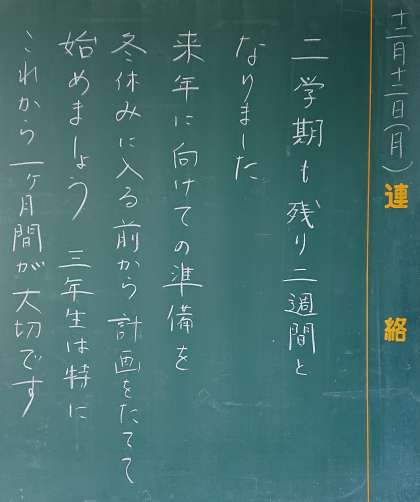 十二月十二日(月)
連絡
二学期も残り二週間と
なりました
来年に向けての準備を
冬休みに入る前から計画をたてて
始めましょう 三年生は特に
これから一ヶ月間が大切です